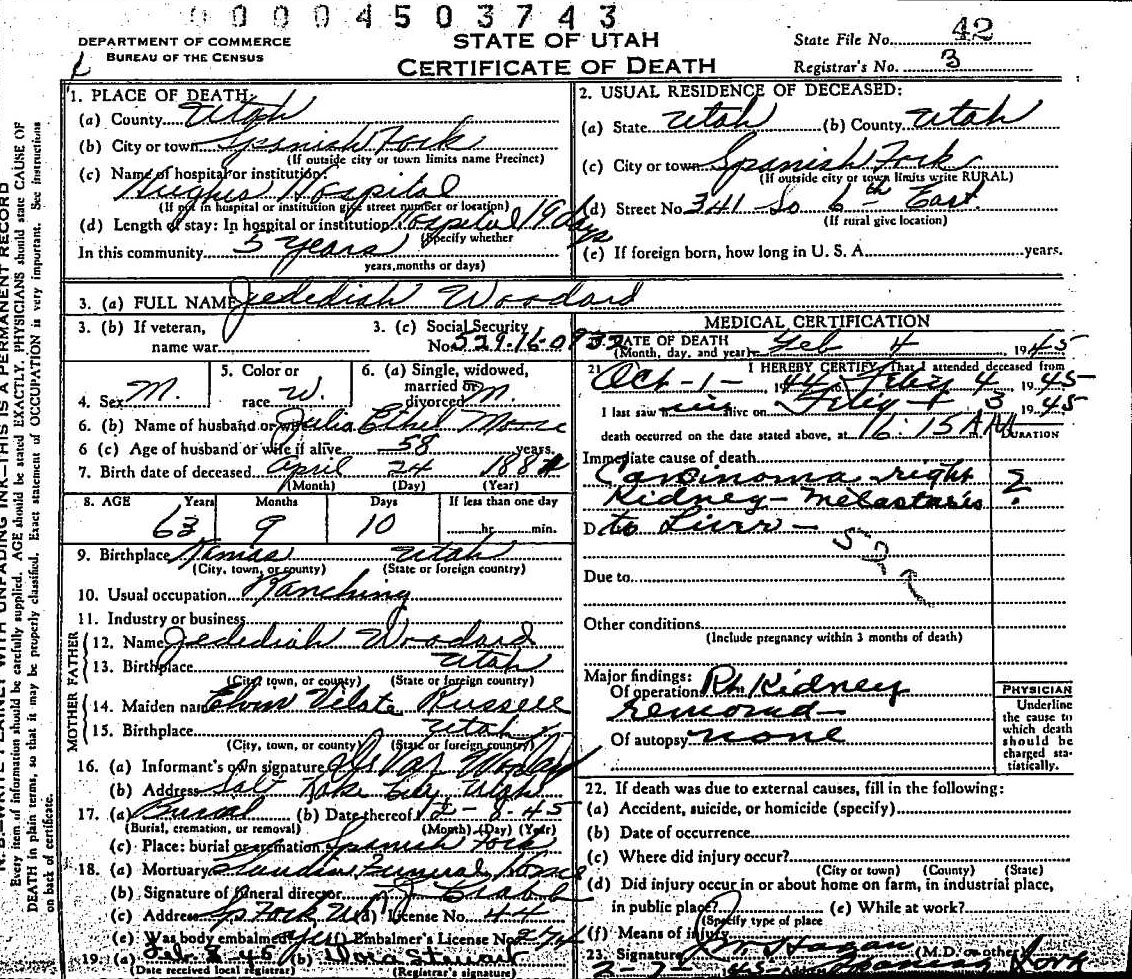 00004503743
DEPARTMENT OF COMMERCE
BUREAU OF THE CENSUS
STATE OF UTAH
CERTIFICATE OF DEATH
State File No. 42
Registrar's No. 3
1. PLACE OF DEATH:
(a) County Utah
(b) City or town Spanish Fork
(If outside city or town limits name Precinct)
(c) Name of hospital or institution:
Hughes Hospital
(If not in hospital or institution give street number or location)
(d) Length of stay: In hospital or institution Hospital 19 days
(Specify whether
In this community 5 years
years, months or days)
2. USUAL RESIDENCE OF DECEASED:
(a) State Utah (b) County Utah
(c) City or town Spanish Fork
(If outside city or town limits write RURAL)
(d) Street No 341 So 6th East
(If rural give location)
(e) If foreign born, how long in U. S. A. years.
3. (a) FULL NAME Jedediah Woodard
3. (b) If veteran,
name war
3. (c) Social Security
No. 529-16-0932
4. Sex M.
5. Color or
race W.
6. (a) Single, widowed,
married or
divorced M
6. (b) Name of husband or wife Julia Ethel Moore
6 (c) Age of husband or wife if alive 58 years.
7. Birth date of deceased April 24 188
(Month) (Day) (Year)
8. AGE Years Months Days If less than one day
63 9 10 hr. min.
9. Birthplace Kamas Utah
(City, town, or county) (State or foreign country)
10. Usual occupation Ranching
11. Industry or business
FATHER
12. Name Jedediah Woodard
13. Birthplace Utah
(City, town, or county) (State or foreign country)
MOTHER
14. Maiden name Russell
15. Birthplace Utah
(City, town, or county) (State or foreign country)
16. (a) Informant's own signature
(b) Address Salt Lake City Utah
17. (a) Burial (b) Date thereof 8-45
(Burial, cremation, or removal) (Month) (Day) (Year)
(c) Place: burial or cremation Spanish Fork
18. (a) Mortuary Claudin Funeral Home
(b) Signature of funeral director
(c) Address Sp Fork Ut (d) License No. 44
(e) Was body embalmed? Yes (f) Embalmer's License No. 274
19. (a) Feb 8-45 (b) Dora Stewart
(Date received local registrar) (Registrar's signature)
MEDICAL CERTIFICATION
DATE OF DEATH
(Month, day, and year) Feb 4, 1945
21 I HEREBY CERTIFY, That I attended deceased from
Oct-1-, 1944 to Feby 4, 1945
I last saw him alive on Feby 3 1945
death occurred on the date stated above, at 15 AM
DURATION
Immediate cause of death
Carcinoma right ?
Kidney-Metastasis
D to Liver -
52
Due to
Other conditions
(Include pregnancy within 3 months of death)
Major findings:
Of operation Rt Kidney
removed-
Of autopsy none
PHYSICIAN
Underline
the cause to
which death
should be
charged sta-
tistically.
22. If death was due to external causes, fill in the following:
(a) Accident, suicide, or homicide (specify)
(b) Date of occurrence
(c) Where did injury occur?
(City or town) (County) (State)
(d) Did injury occur in or about home on farm, in industrial place,
in public place? (e) While at work?
(Specify type of place
(f) Means of injury
23. Signature Hagan (M.D. or other)
2-7-45 Address Spanish Fork
N. B.—WRITE PLAINLY WITH UNFADING INK—THIS IS A PERMANENT RECORD
Every item of information should be carefully supplied. AGE should be stated EXACTLY. PHYSICIANS should state CAUSE OF
DEATH in plain terms, so that it may be properly classified. Exact statement of OCCUPATION is very important. See instructions
on back of certificate.